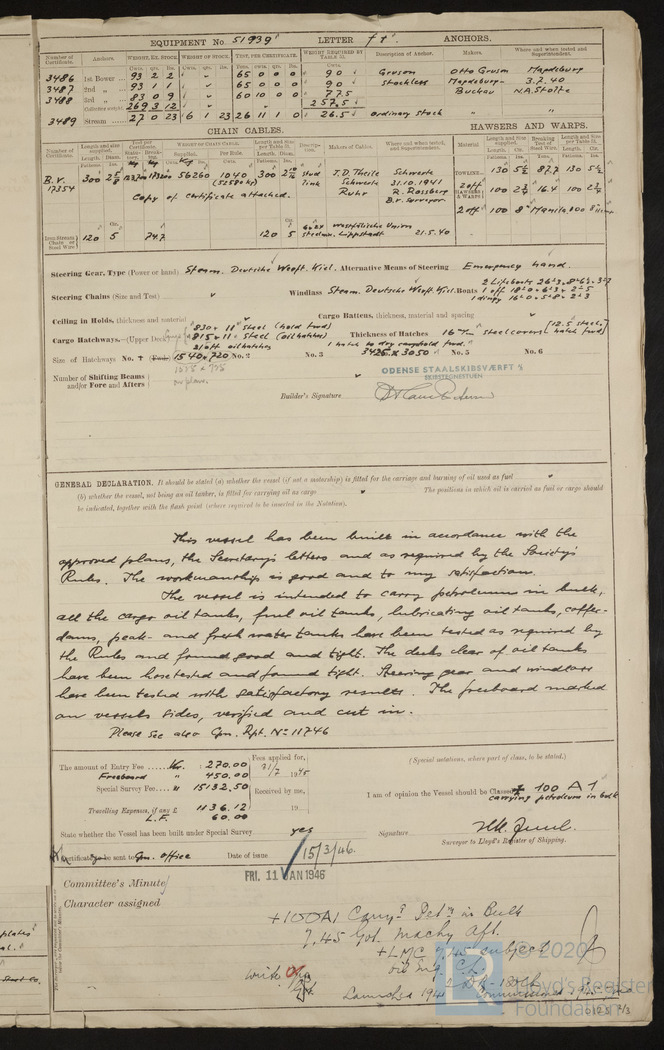 EQUIPMENT No 51939 LETTER f† ANCHORS.
Number of Certificate. Anchors. WEIGHT, EX. STOCK. WEIGHT OF STOCK. TEST, PER CERTIFICATE. WEIGHT REQUIRED BY TABLE 31. Description of Anchor. Makers. Where and when tested and Superintendent.
3486 1st Bower 93 2 2 65 0 0 0 90 Gruson Otto Gruson Magdeburg
3487 2nd „ 93 1 1 65 0 0 0 90 Stockless Magdeburg- 3.7.40
3488 3rd „ 83 0 9 60 10 0 0 77.5 Buckau N.A. Stolte
Collective weight 269 3 12 257,5
3489 Stream 27 0 23 6 1 23 26 11 1 0 26.5 ordinary stock
CHAIN CABLES. HAWSERS AND WARPS.
B.V. 17354 300 2 5/8 56260 1040 (52580 kg) 300 stud link J.D. Theile Schwerte Ruhr Schwerte 31.10.1941 R. Rossberg B.V. Surveyor
Copy of certificate attached.
TOWLINE 130 5½ 87.7 130 5½
2 off HAWSERS & WARPS 100 2¾ 16.4 100 2¾
2 off 100 8" Manila 100 8"
Iron Stream Chain or Steel Wire 120 5 74.7 120 5 Westfälische Union Lippstadt 21.5.40
Steering Gear, Type (Power or hand) Steam. Deutsche Werft. Kiel. Alternative Means of Steering Emergency hand.
Steering Chains (Size and Test) Windlass Steam. Deutsche Werft. Kiel. Boats 2 Lifeboats 26'3 × 8'6½ × 3'7
1 off 18'0 × 6'3 × 2'5
1 dingy 16'0 × 5'8 × 2'3
Ceiling in Holds, thickness and material Cargo Battens, thickness, material and spacing
Cargo Hatchways.—(Upper Deck) 830 × 11 Steel (hold fwd)
815 × 11 Steel (oil hatches) Thickness of Hatches 16 mm steel covers (12.5 steel, hatch fwd)
21 off oil hatches 1 hatch to dry cargo hold fwd.
Size of Hatchways No. 1 1540 × 720 No. 2 No. 3 3425 × 3050 No. 5 No. 6
Number of Shifting Beams and/or Fore and Afters
on plans.
ODENSE STAALSKIBSVÆRFT A/S
SKIBSTEGNESTUEN
Builder's Signature
GENERAL DECLARATION. It should be stated (a) whether the vessel (if not a motorship) is fitted for the carriage and burning of oil used as fuel
(b) whether the vessel, not being an oil tanker, is fitted for carrying oil as cargo The positions in which oil is carried as fuel or cargo should
be indicated, together with the flash point (where required to be inserted in the Notation).
This vessel has been built in accordance with the
approved plans, the Secretary's letters and as required by the Society's
Rules. The workmanship is good and to my satisfaction.
The vessel is intended to carry petroleum in bulk,
all the cargo oil tanks, fuel oil tanks, lubricating oil tanks, coffer-
dams, peak- and fresh water tanks have been tested as required by
the Rules and found good and tight. The decks clear of oil tanks
have been hose tested and found tight. Steering gear and windlass
have been tested with satisfactory results. The freeboard marked
on vessels sides, verified and cut in.
Please see also Gm. Rpt. No 11746
The amount of Entry Fee Kr. : 270.00 Fees applied for,
Freeboard " 450.00 31/7 1945
Special Survey Fee " 15132.50 Received by me,
Travelling Expenses, if any £ 1136.12 19
L.F. 60.00
(Special notations, where part of class, to be stated.)
I am of opinion the Vessel should be Classed ✠ 100 A 1
carrying petroleum in bulk
State whether the Vessel has been built under Special Survey yes
Signature
Surveyor to Lloyd's Register of Shipping.
Certificate to be sent to Gm. office Date of issue 15/3/46.
FRI. 11 JAN 1946
Committee's Minute
Character assigned
+100A1 Carryg Petm in Bulk
7.45 Got. Machy Aft.
+LMC 7.45 subject
oil Eng. C.L.
write
Got. 2 DB - 180 lb
Launched 1941 Commissioned 1945
© 2020
Lloyd's Register
Foundation
0125 2/3
plates
al.